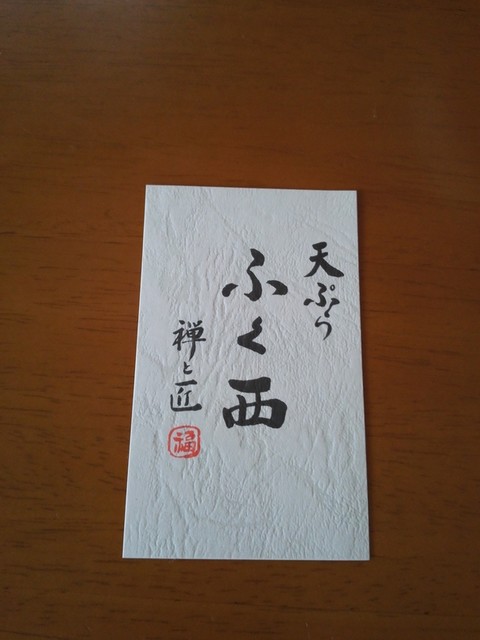 天ぷら
ふく西
禅と匠
福